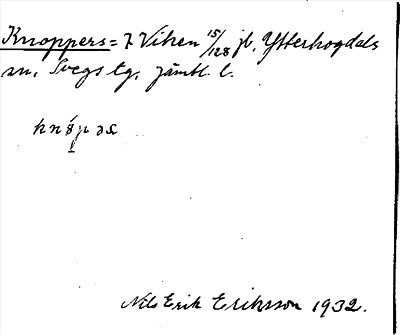 Knoppers = 7 Viken 15/128 jb, Ytterhogdals
sn, Svegs tg, Jämtl. l.
Nils Erik Eriksson 1932.